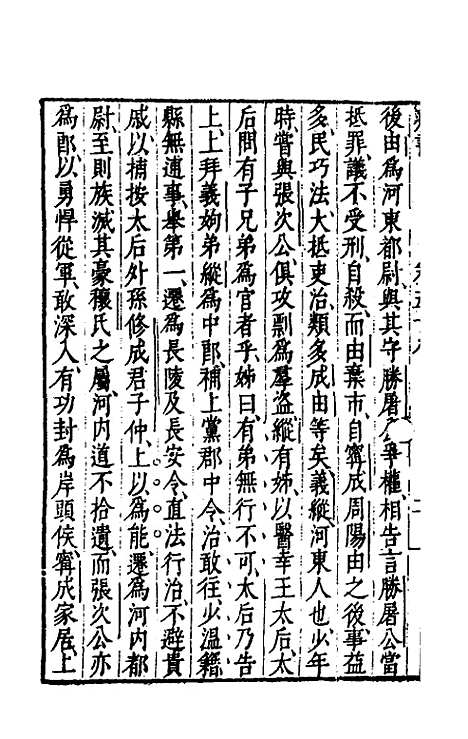 後由爲河東都尉與其守勝屠公爭權相告言勝屠公當
抵罪議不受刑自殺而由棄市自甯成周陽由之後事益
多民巧法大抵吏治類多成由等矣義縱河東人也少年
時嘗與張次公俱攻剽爲羣盜縱有姊以醫幸王太后太
后問有子兄弟爲官者乎姊曰有弟無行不可太后乃告
上上拜義姁弟縱爲中郎補上黨郡中令治敢往少溫籍
縣無逋事舉第一遷爲長陵及長安令直法行治不避貴
戚以捕按太后外孫修成君子仲上以爲能遷爲河內都
尉至則族滅其豪穰氏之屬河內道不拾遺而張次公亦
爲郎以勇悍從軍敢深入有功封爲岸頭侯甯成家居上